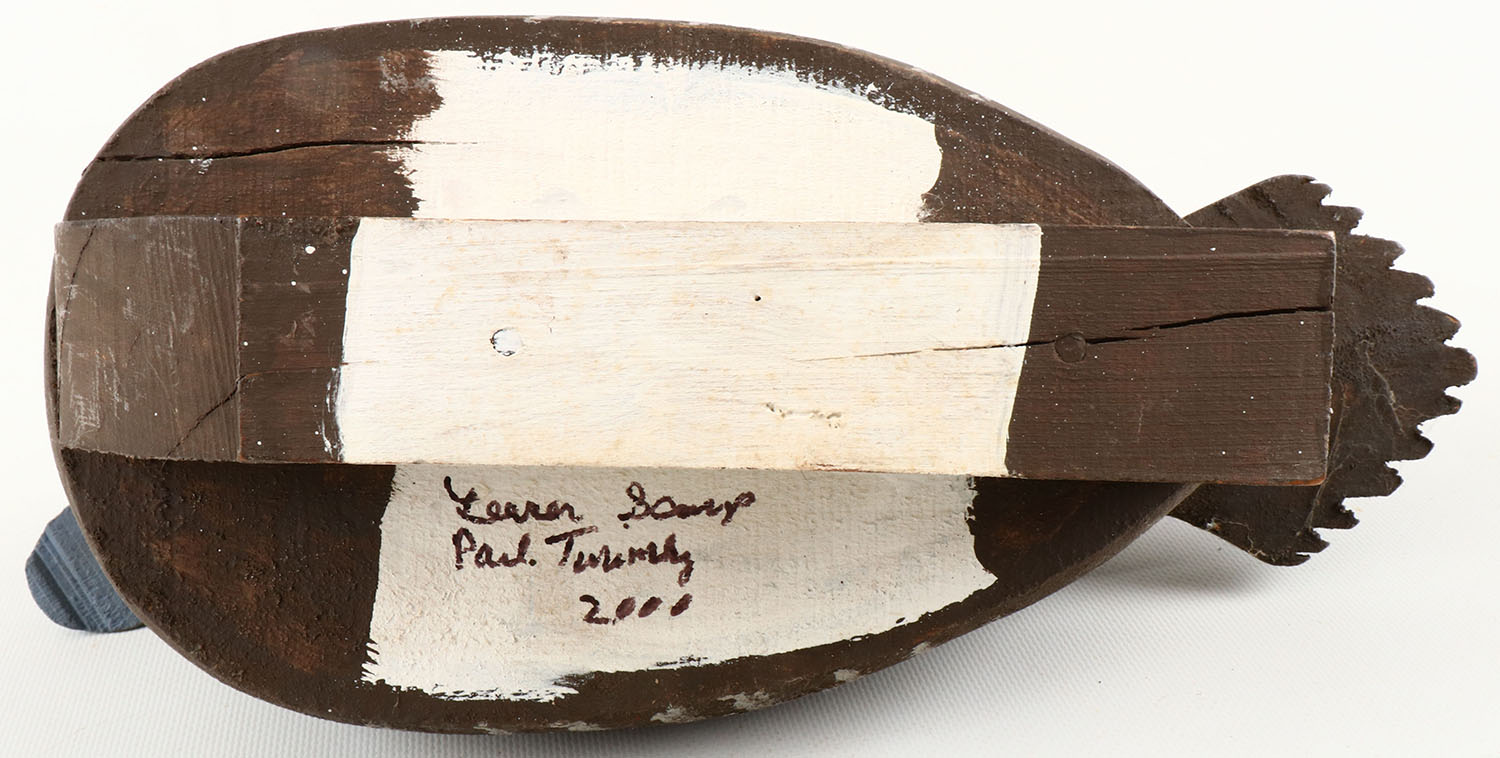 Lesser Scaup
Paul Twombly
2000